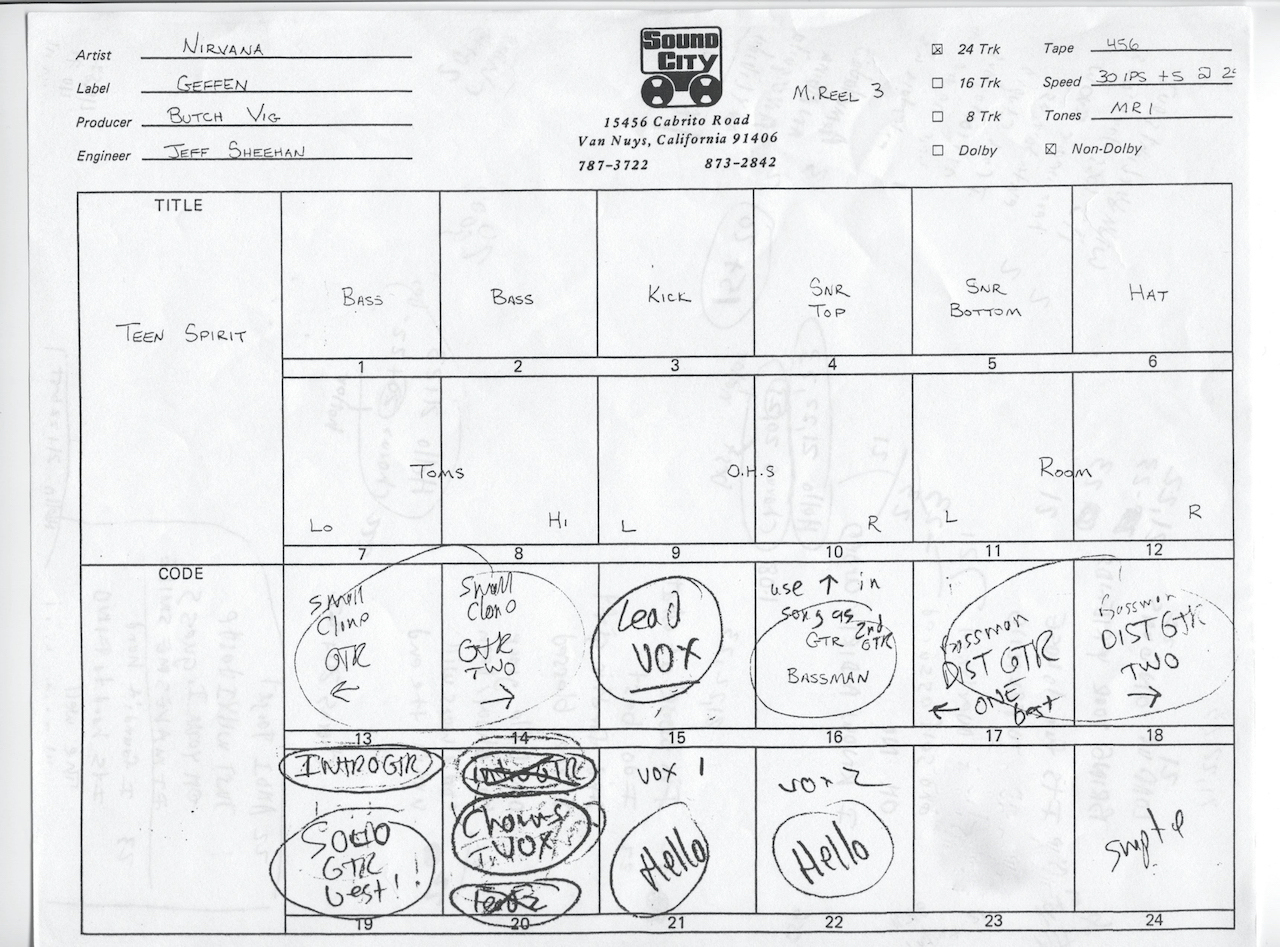 Artist NIRVANA
Label GEFFEN
Producer BUTCH VIG
Engineer JEFF SHEEHAN
SOUND
CITY
15456 Cabrito Road
Van Nuys, California 91406
787-3722 873-2842
M. REEL 3
24 Trk Tape 456
16 Trk Speed 30 IPS +5
8 Trk Tones MRI
Dolby Non-Dolby
TITLE
TEEN SPIRIT
BASS
BASS
KICK
SNR
TOP
SNR
BOTTOM
HAT
1 2 3 4 5 6
TOMS
O.H.S
ROOM
LO HI L R L R
7 8 9 10 11 12
CODE
Small
Clone
GTR
←
Small
Clono
GTR
TWO
→
Lead
VOX
use ↑ in
song as
2nd
GTR GTR
BASSMAN
Bassman
DIST GTR
← ONE
best
Bassman
DIST GTR
TWO
→
13 14 15 16 17 18
INTRO GTR
SOLO
GTR
best!!
Intro GTR
Chorus
VOX
VOX 1
Hello
VOX 2
Hello
smpte
19 20 21 22 23 24